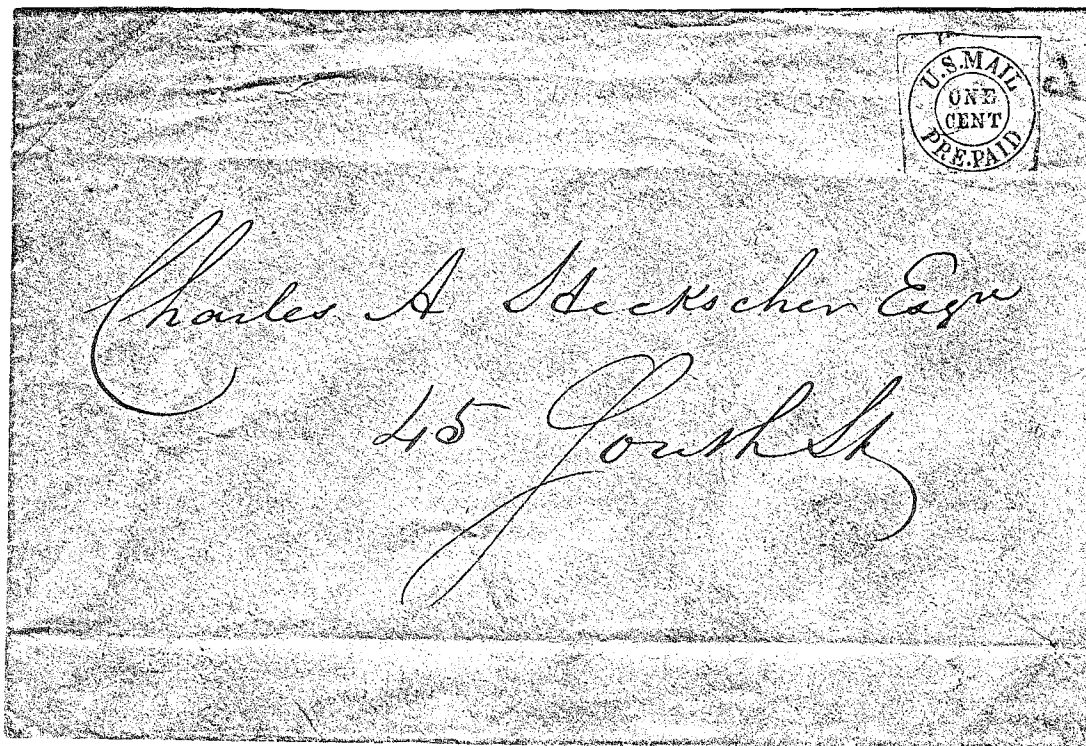 U.S. MAIL
ONE
CENT
PRE.PAID
Charles A Heckscher Esqre
45 South St